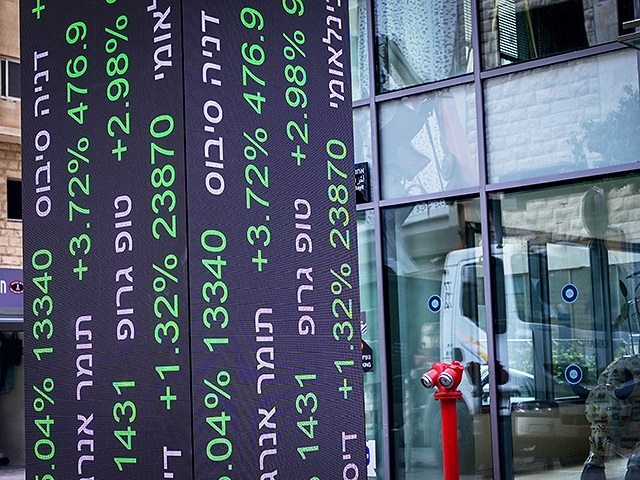 דניה סיבוס 13340 5.04%
476.9 +3.72% תומר
+2.98% טופ גרופ 1431
23870 +1.32%
דניה סיבוס 13340 .04%
476.9 +3.72% תומר
+2.98% טופ גרופ 1431
23870 +1.32%